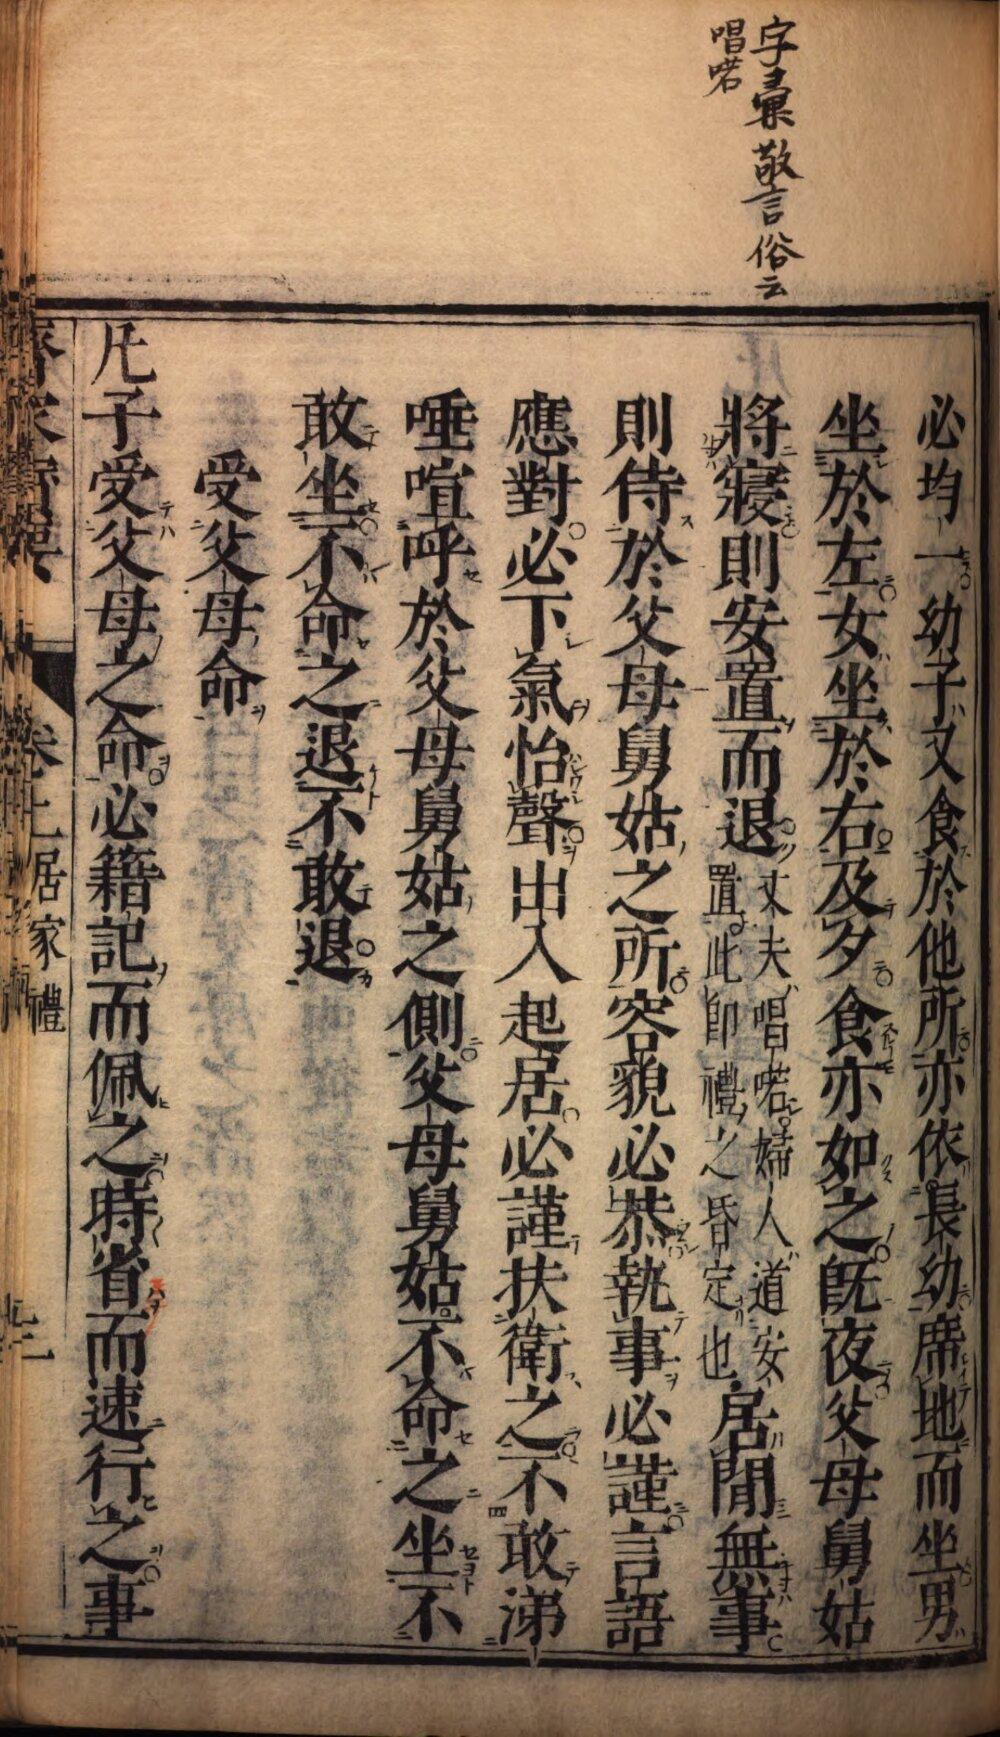 字彙敬言俗云
唱喏
必均一幼子又食於他所亦依長幼席地而坐男
坐於左女坐於右及夕食亦如之旣夜父母舅姑
將寢則安置而退丈夫唱喏婦人道安
置此卽禮之昏定也居閒無事
則侍於父母舅姑之所容貌必恭執事必謹言語
應對必下氣怡聲出入起居必謹扶衛之不敢涕
唾喧呼於父母舅姑之側父母舅姑不命之坐不
敢坐不命之退不敢退
受父母命
凡子受父母之命必籍記而佩之時省而速行之事
卷上居家禮